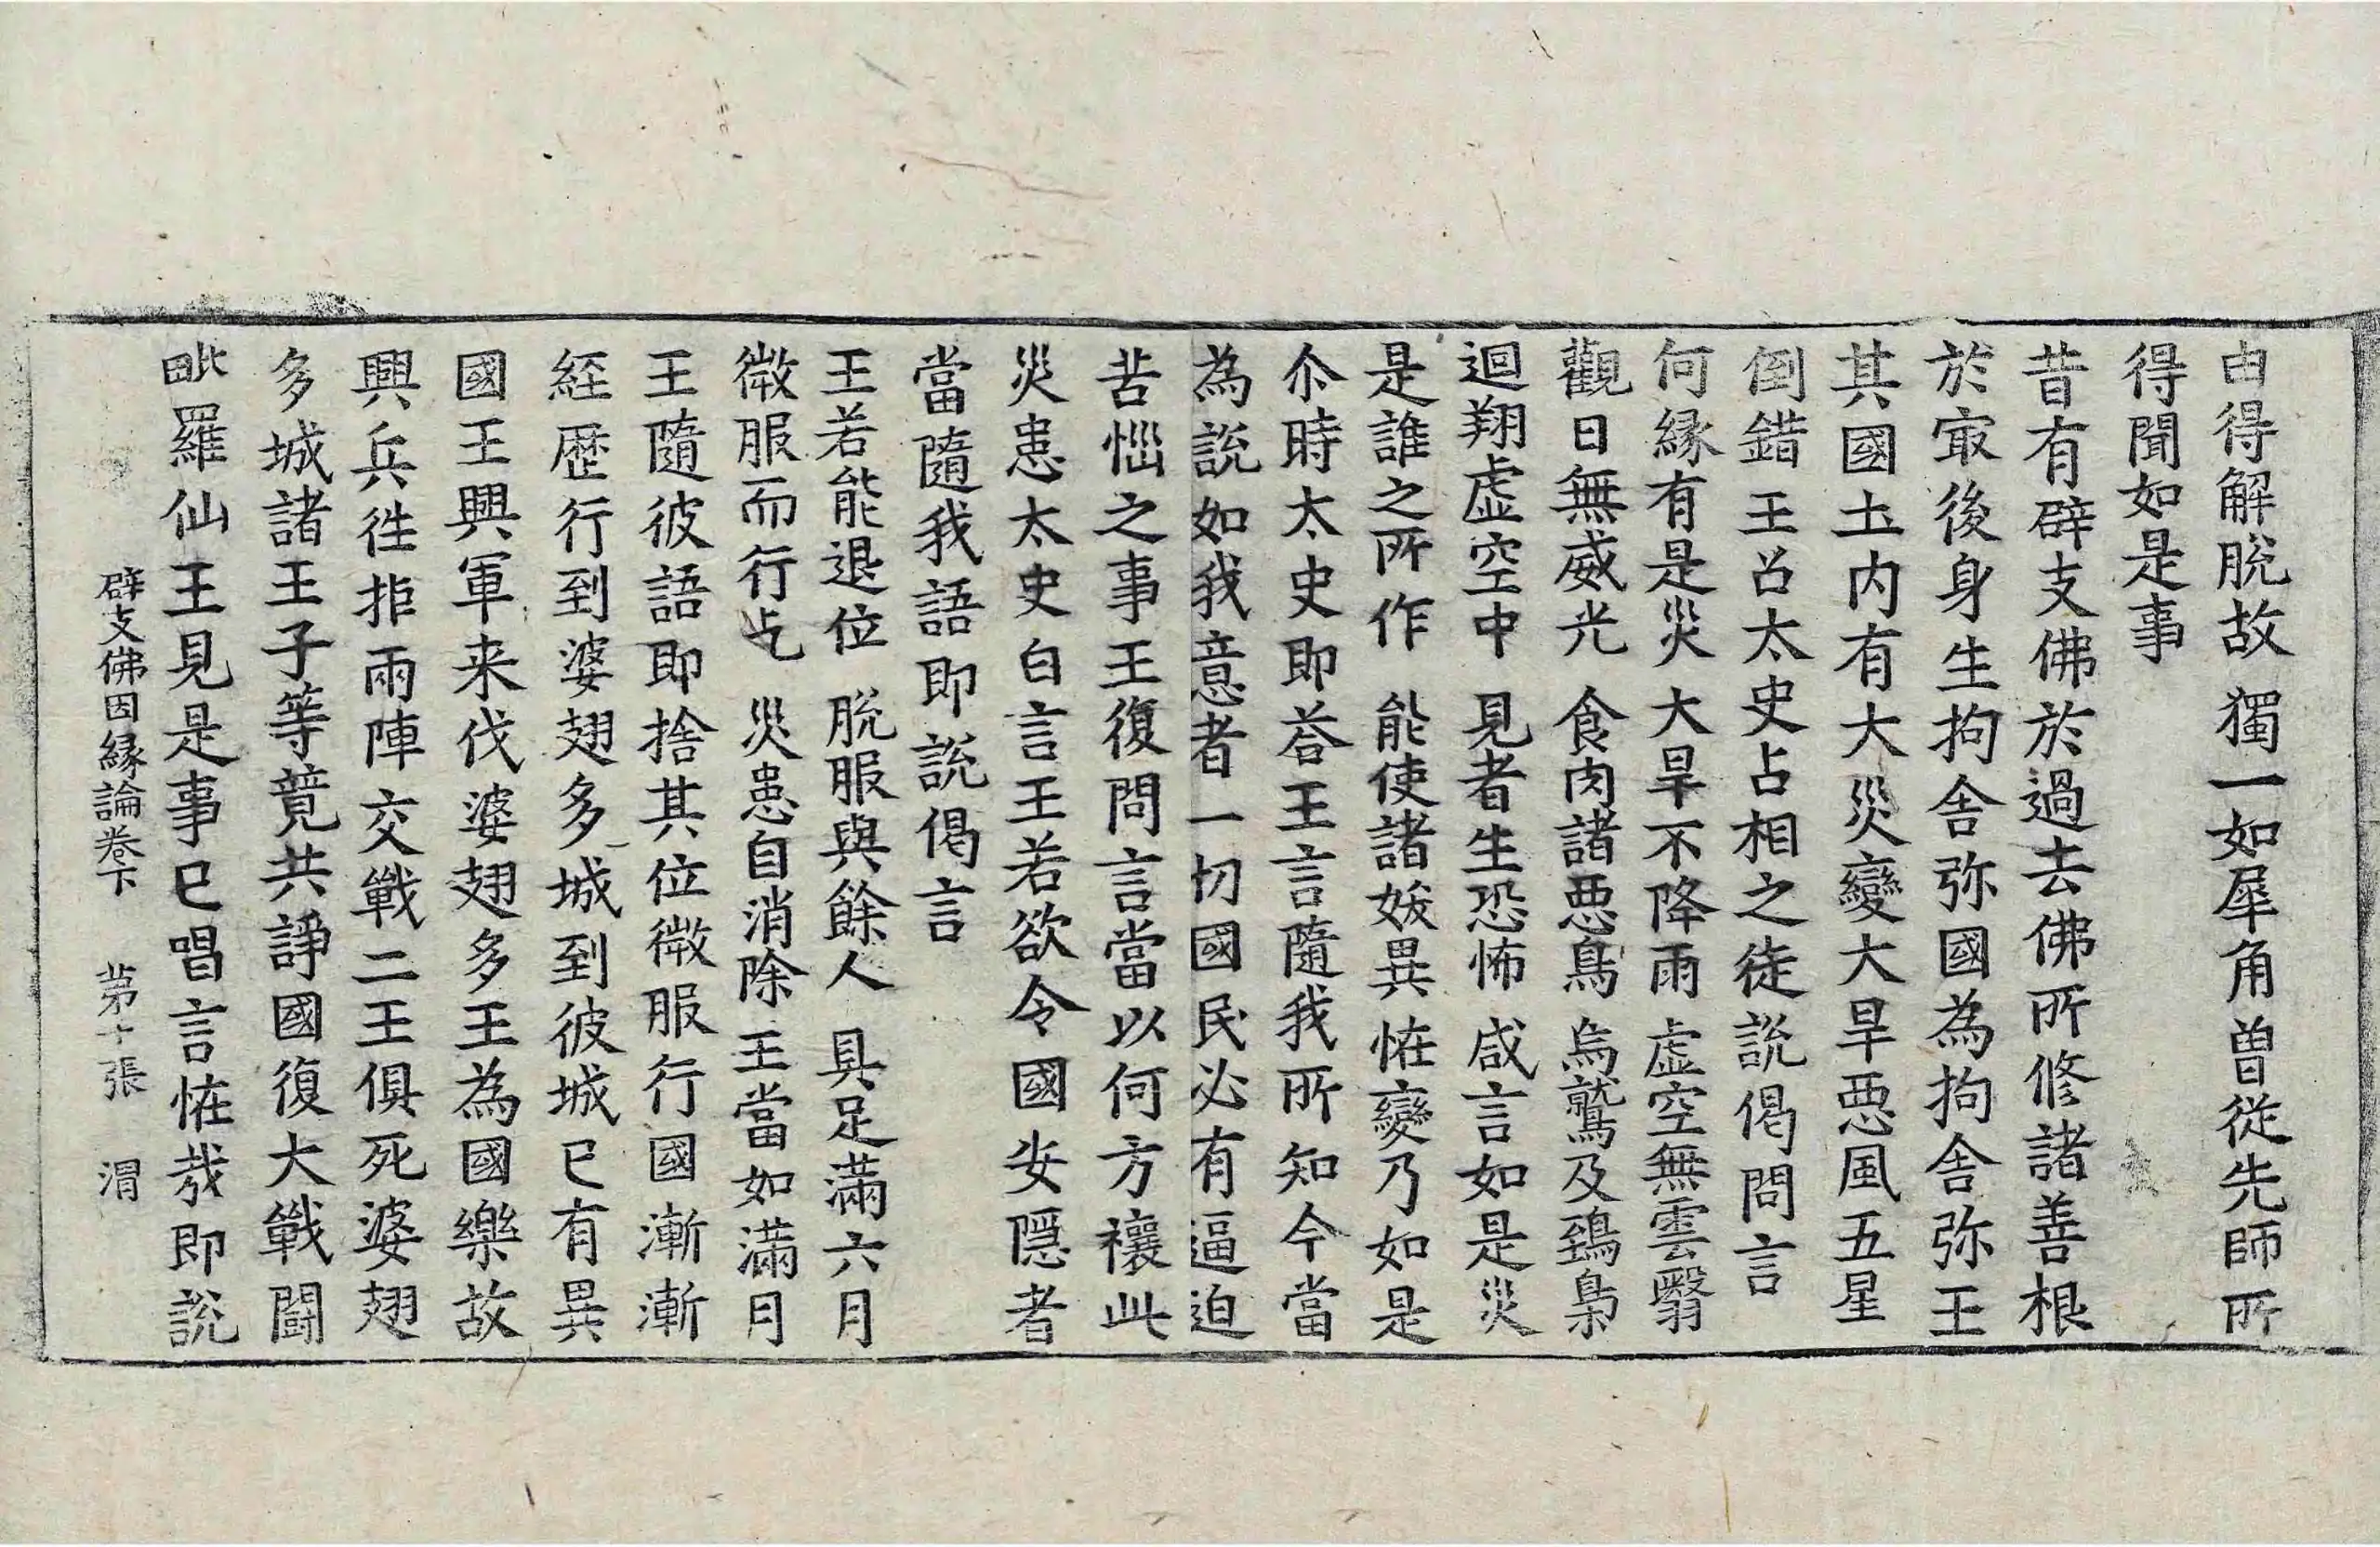 由得解脫故　獨一如犀角曽從先師所
得聞如是事
昔有辟支佛於過去佛所修諸善根
於㝡後身生拘舍弥國為拘舍弥王
其國𡈽内有大災變大旱惡風五星
倒錯王召太史占相之徒說偈問言
何緣有是災　大旱不降雨　虛空無雲翳
觀日無威光　食肉諸惡鳥　烏鷲及鵄梟
迴翔虛空中　見者生恐怖　咸言如是災
是誰之所作　能使諸妖異　恠變乃如是
尒時太史即荅王言隨我所知今當
為說如我意者一切國民必有逼迫
苦惱之事王復問言當以何方禳此
災患太史白言王若欲令國安隱者
當隨我語即說偈言
王若能退位　脫服與餘人　具足滿六月
微服而行乞　災患自消除　王當如滿月
王隨彼語即捨其位微服行國漸漸
經歷行到婆翅多城到彼城已有異
國王興軍来伐婆翅多王為國樂故
興兵往拒兩陣交戰二王俱死婆翅
多城諸王子等竟共諍國復大戰鬪
毗羅仙王見是事已唱言恠㢤即說
辟支佛因縁論卷下　苐十張　渭